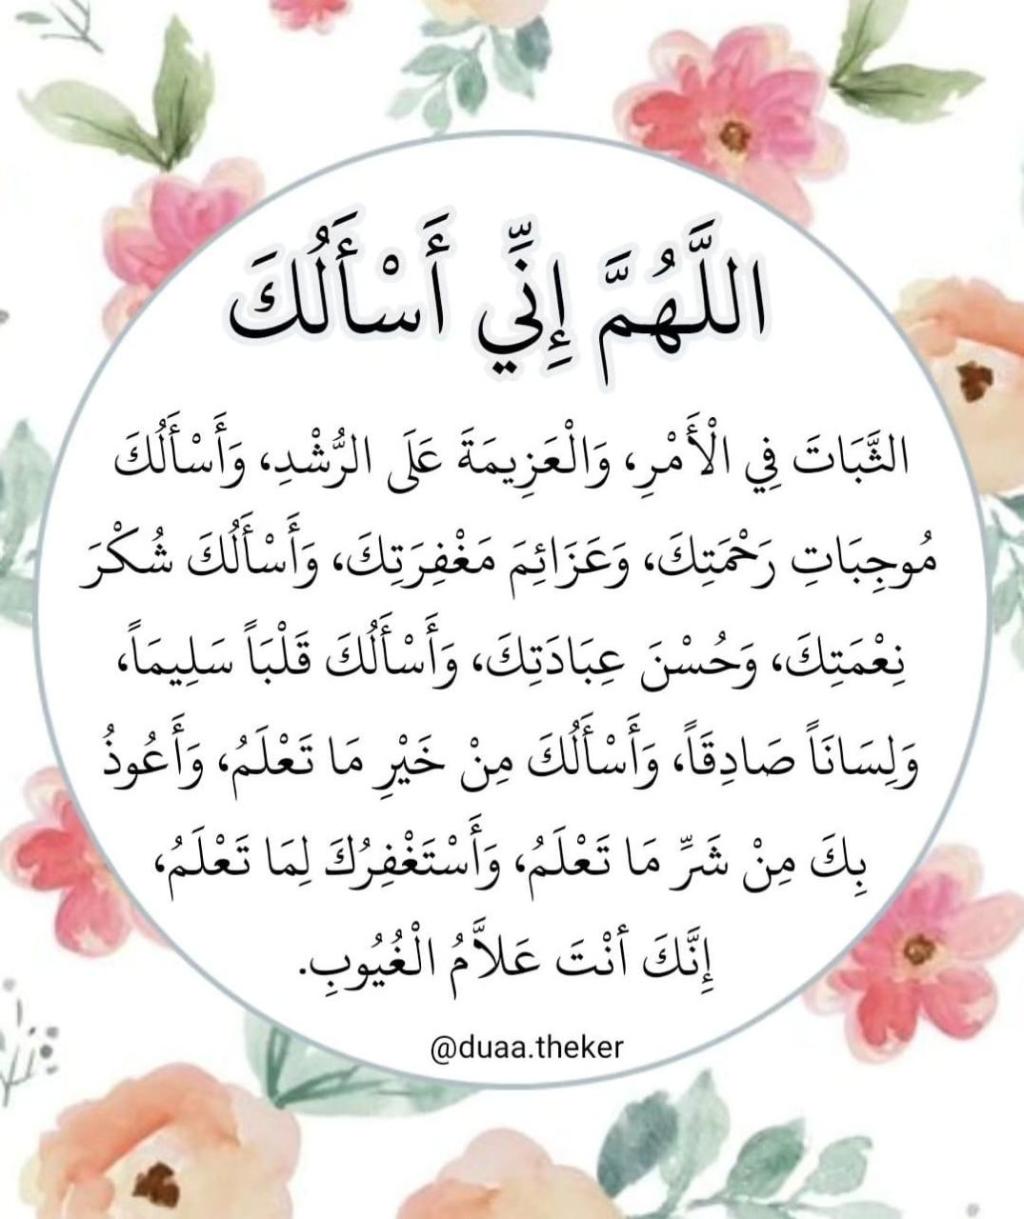 اللَّهُمَّ إِنِّي أَسْأَلُكَ
الثَّبَاتَ فِي الْأَمْرِ، وَالْعَزِيمَةَ عَلَى الرُّشْدِ، وَأَسْأَلُكَ
مُوجِبَاتِ رَحْمَتِكَ، وَعَزَائِمَ مَغْفِرَتِكَ، وَأَسْأَلُكَ شُكْرَ
نِعْمَتِكَ، وَحُسْنَ عِبَادَتِكَ، وَأَسْأَلُكَ قَلْبَاً سَلِيمَاً،
وَلِسَانَاً صَادِقَاً، وَأَسْأَلُكَ مِنْ خَيْرِ مَا تَعْلَمُ، وَأَعُوذُ
بِكَ مِنْ شَرِّ مَا تَعْلَمُ، وَأَسْتَغْفِرُكَ لِمَا تَعْلَمُ،
إِنَّكَ أنْتَ عَلاَّمُ الْغُيُوبِ.
@duaa.theker